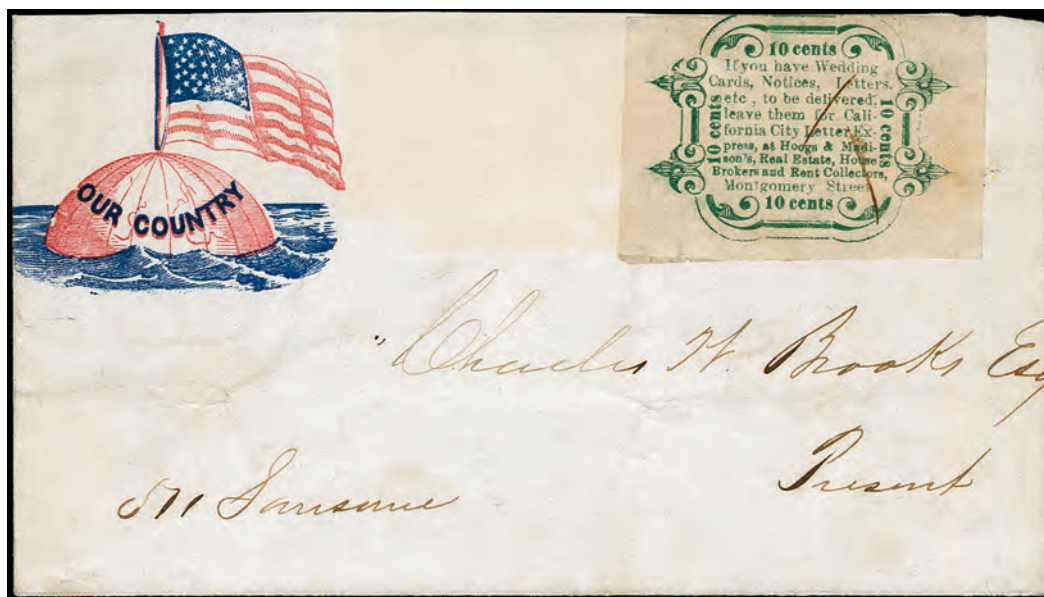 OUR COUNTRY
10 cents
If you have Wedding
Cards, Notices, Letters,
etc, to be delivered,
leave them for Cali-
fornia City Letter Ex-
press, at Hoogs & Madi-
son's, Real Estate, House
Brokers and Rent Collectors,
Montgomery Street
10 cents
10 cents
10 cents
"Charles W. Brooks Esq
Present
511 Sansome